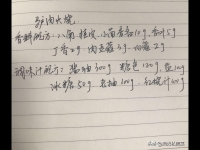 驴肉火烧
香料配方: 八角、桂皮、小茴香各10g、香叶5g
丁香2g 肉豆蔻3g、肉蔻2g
调味汁配方: 酱油300g 糖色120g 盐100g
冰糖50g 老抽100g 红烧汁100g